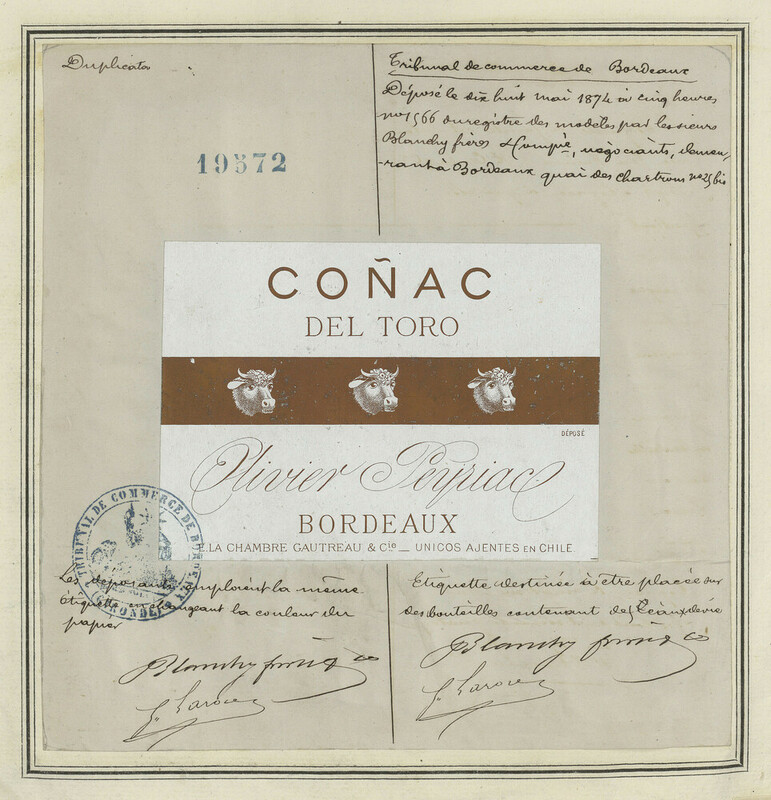 Duplicata
Tribunal de commerce de Bordeaux
Déposé le dix huit mai 1874 à cinq heures
no 1566 du registre des modèles par les sieurs
Blanchy frères & Compie, négociants, demeu-
-rant à Bordeaux quai des chartrons no 25 bis
19572
COÑAC
DEL TORO
DÉPOSÉ
Olivier Peyriac
BORDEAUX
E. LA CHAMBRE GAUTREAU & Cio _ UNICOS AJENTES EN CHILE
TRIBUNAL DE COMMERCE DE BORDEAUX
(GIRONDE)
Les déposants emploient la même
étiquette en changeant la couleur du
papier
Blanchy frères & co
Etiquette destinée à être placée sur
des bouteilles contenant des Eaux de vie
Blanchy frères & co